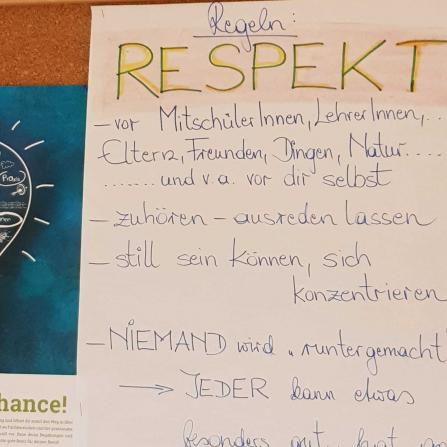 Regeln:
RESPEKT
– vor MitschülerInnen, LehrerInnen,..
Eltern, Freunden, Dingen, Natur....
....... und v.a. vor dir selbst
– zuhören – ausreden lassen
– still sein können, sich
konzentrieren
– NIEMAND wird „runtergemacht"
→ JEDER kann etwas
besonders gut
hance!